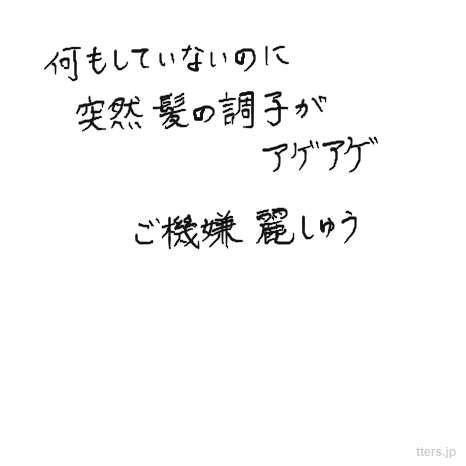 何もしていないのに
突然髪の調子が
アゲアゲ
ご機嫌麗しゅう
tters.jp